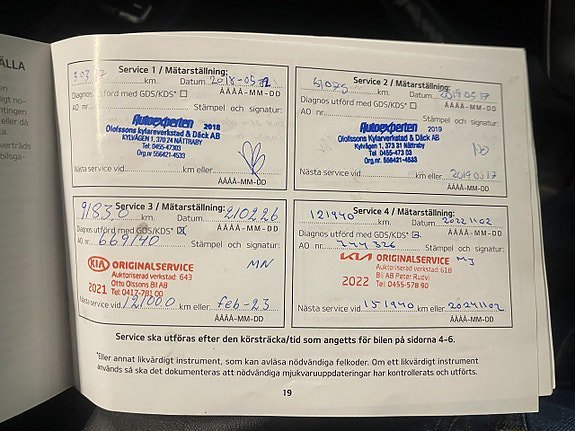 ÄLLA
Service 1 / Mätarställning:
km. Datum 2018-05-
Diagnos utförd med GDS/KDS* ÅÅÅÅ-MM-DD
AO nr. Stämpel och signatur:
Autoexperten 2018
Olofssons Kylarverkstad & Däck AB
KYLVÄGEN 1, 370 24 NÄTTRABY
Tel: 0455-47303
Org.nr 556421-4533
Nästa service vid km eller
ÅÅÅÅ-MM-DD
Service 2 / Mätarställning:
61075 km. Datum 2019.05.17
Diagnos utförd med GDS/KDS* ÅÅÅÅ-MM-DD
AO nr. Stämpel och signatur:
Autoexperten 2019
Olofssons Kylarverkstad & Däck AB
Kylvägen 1, 373 31 Nättraby
Tel: 0455-473 03
Org.nr 556421-4533
Nästa service vid km eller
ÅÅÅÅ-MM-DD
Service 3 / Mätarställning:
91830 km. Datum 210226
Diagnos utförd med GDS/KDS* ÅÅÅÅ-MM-DD
AO nr. 669140 Stämpel och signatur:
KIA ORIGINALSERVICE MN
Auktoriserad verkstad: 643
2021 Otto Olssons Bil AB
Tel: 0417-781 00
Nästa service vid 121000 km eller feb-23
ÅÅÅÅ-MM-DD
Service 4 / Mätarställning:
121940 km. Datum 20221102
Diagnos utförd med GDS/KDS* ÅÅÅÅ-MM-DD
AO nr. 744326 Stämpel och signatur:
KIA ORIGINALSERVICE MJ
Auktoriserad verkstad: 618
2022 Bil AB Peter Rudvi
Tel: 0455-578 90
Nästa service vid 151940 km eller 20241102
ÅÅÅÅ-MM-DD
Service ska utföras efter den körsträcka/tid som angetts för bilen på sidorna 4-6.
*Eller annat likvärdigt instrument, som kan avläsa nödvändiga felkoder. Om ett likvärdigt instrument
används så ska det dokumenteras att nödvändiga mjukvaruuppdateringar har kontrollerats och utförts.
19